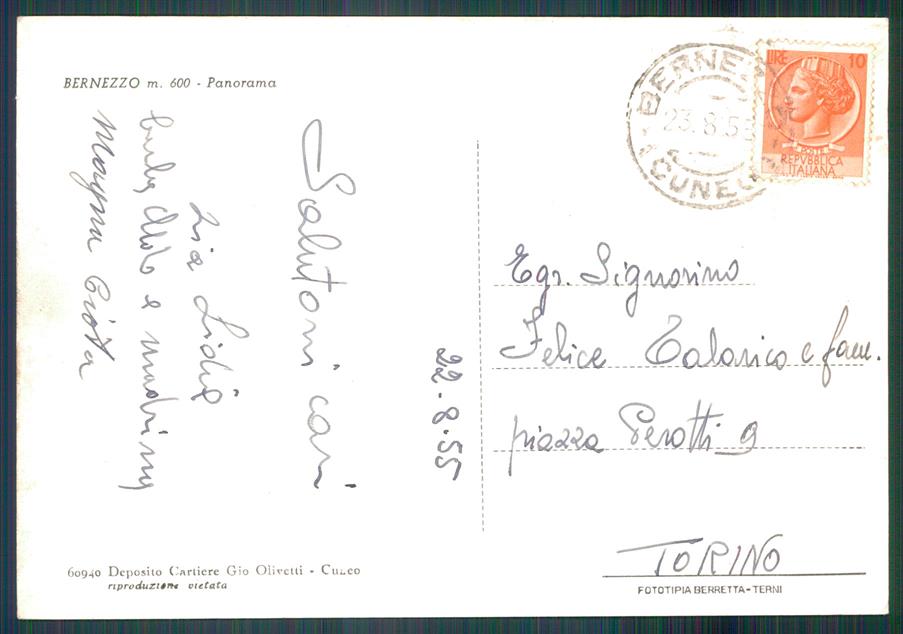 BERNEZZO m. 600 - Panorama
Salutoni cari
Zia Lidia
barba Aldo e madrina
Magna Ciota
22.8.55
BERNEZ
23.8.55
(CUNEO)
LIRE 10
POSTE
REPVBBLICA
ITALIANA
Egr. Signorino
Felice Talarico e fam.
piazza Perotti 9
TORINO
60940 Deposito Cartiere Gio Olivetti - Cuneo
riproduzione vietata
FOTOTIPIA BERRETTA - TERNI